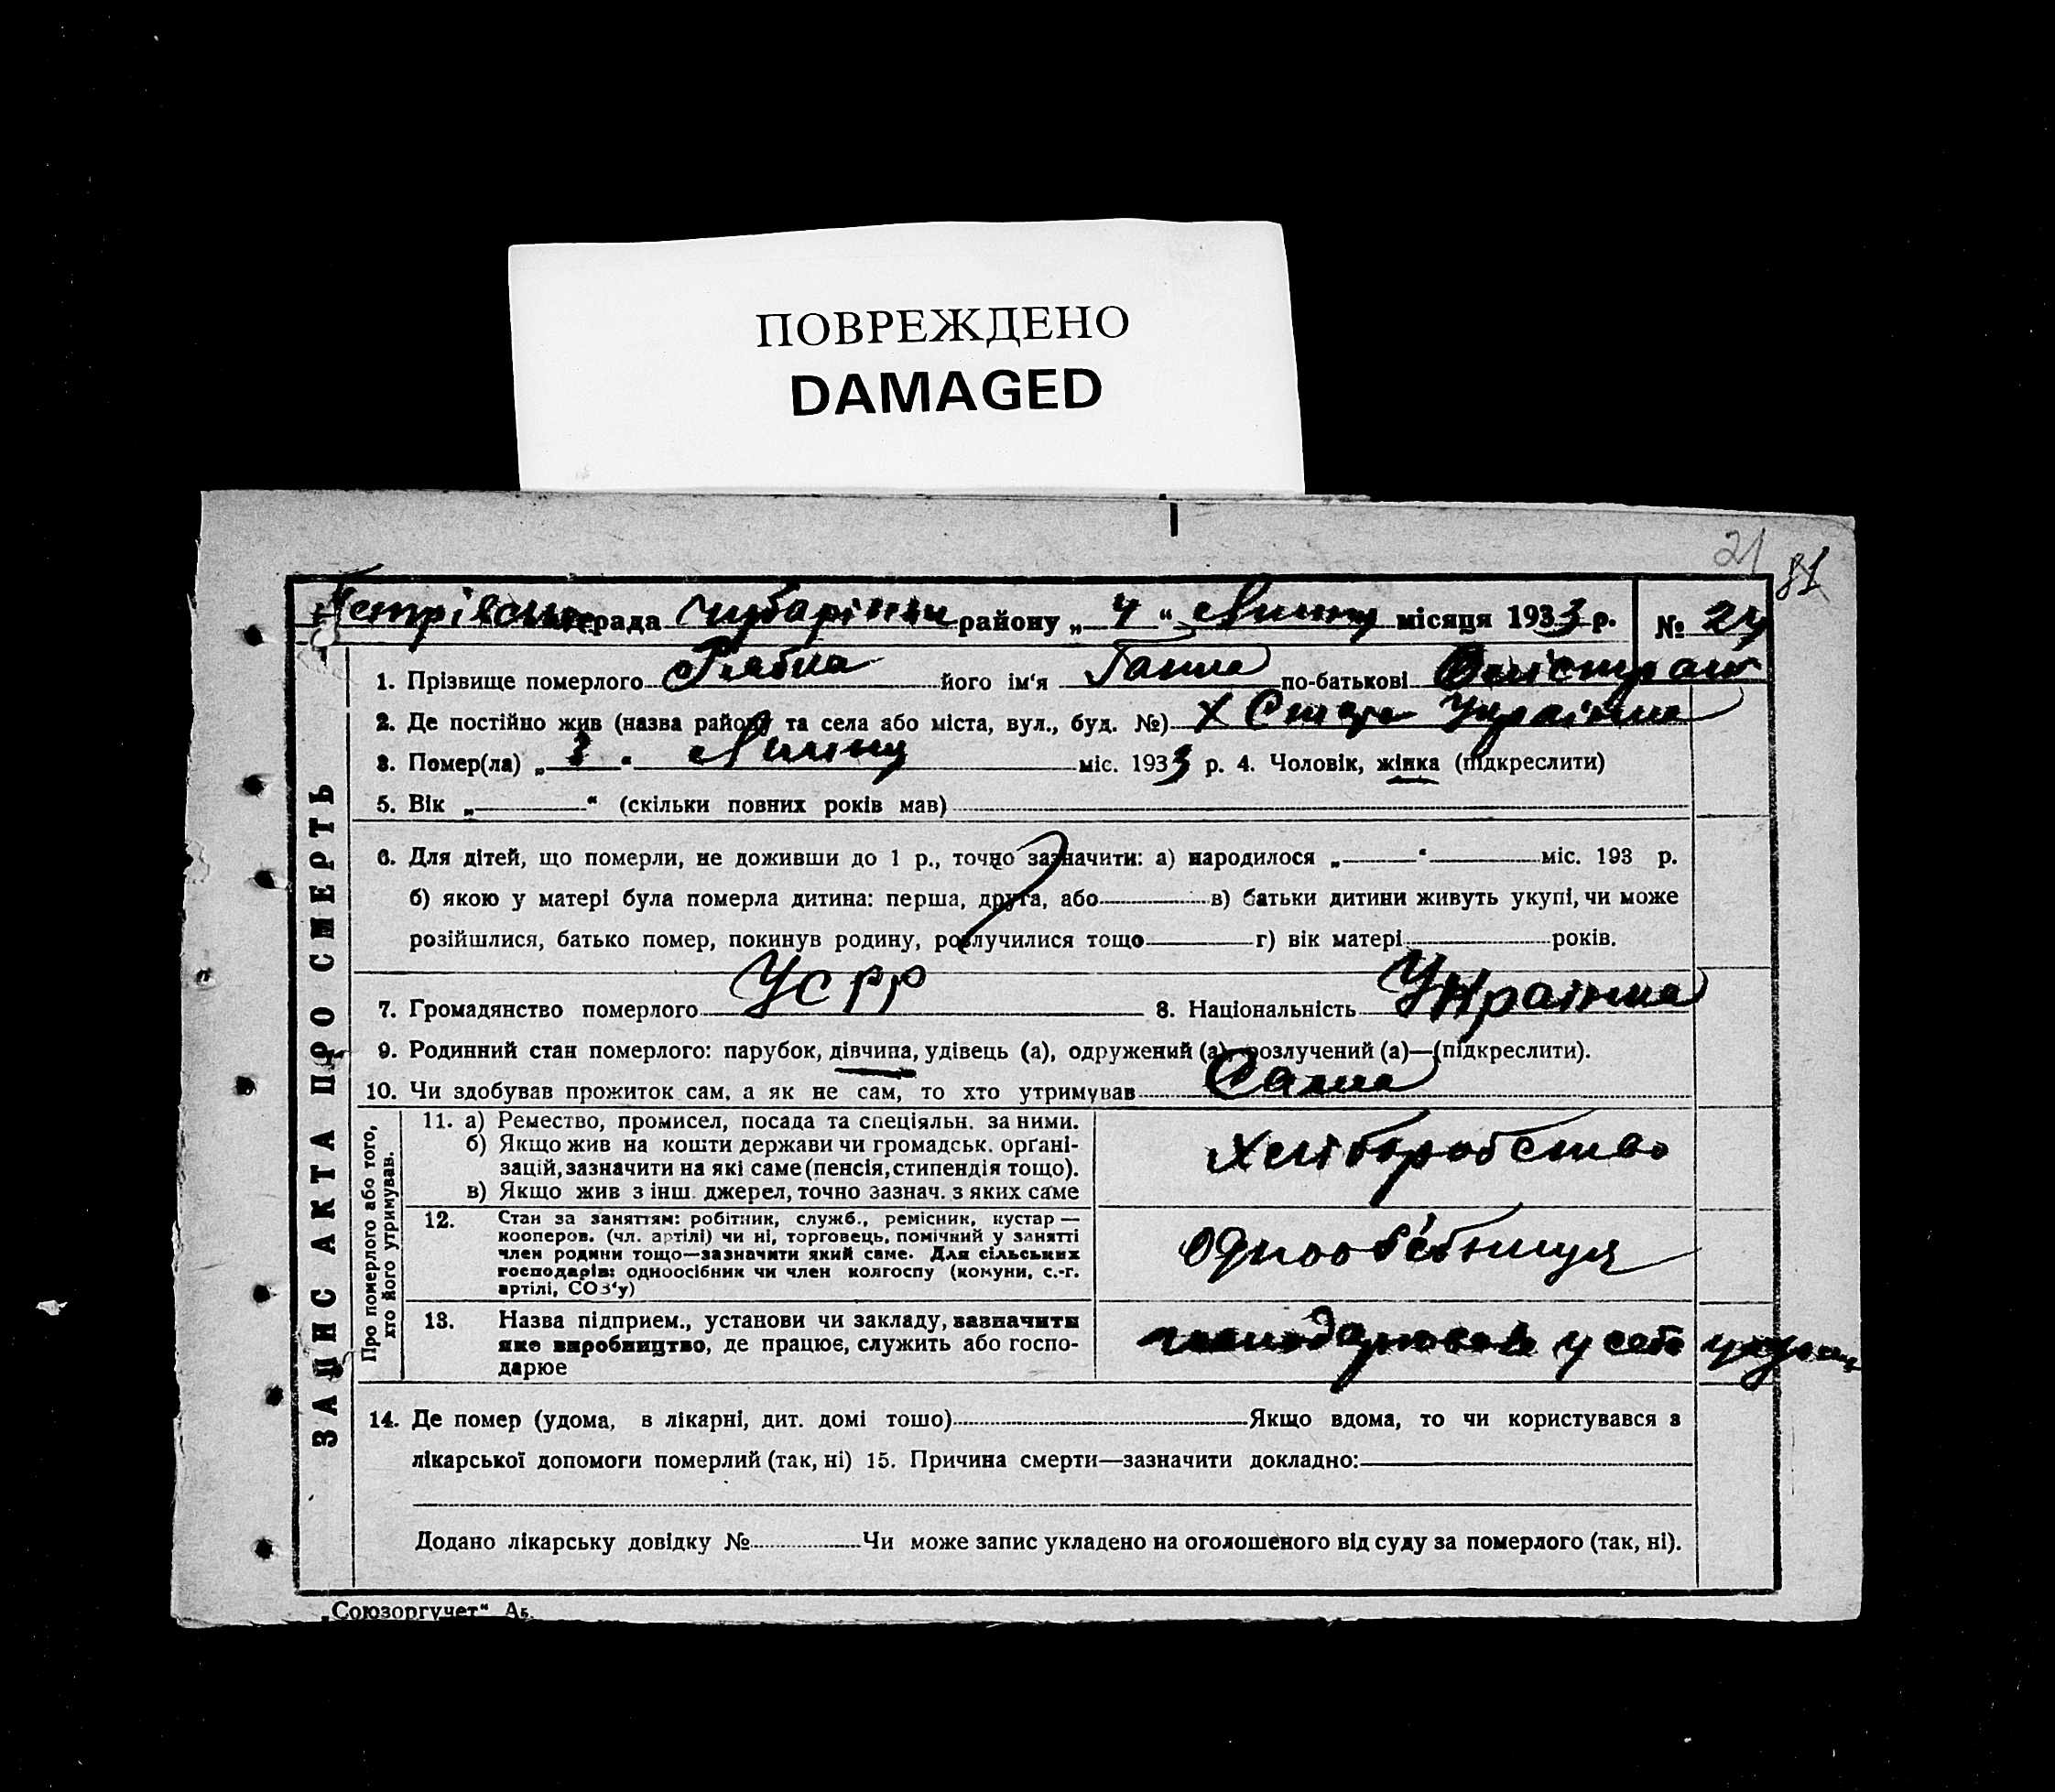 ПОВРЕЖДЕНО
DAMAGED
21 81
рада району „ 4 “ місяця 1933 р. № 24
1. Прізвище померлого Рябка його ім‘я Ганна по-батькові
2. Де постійно жив (назва району та села або міста, вул., буд. №) х Україна
3. Помер(ла) „ 3 “ міс. 1933 р. 4. Чоловік, жінка (підкреслити)
5. Вік „ “ (скільки повних років мав)
6. Для дітей, що померли, не доживши до 1 р., точно зазначити: а) народилося „ “ міс. 193 р.
б) якою у матері була померла дитина: перша, друга, або в) батьки дитини живуть укупі, чи може
розійшлися, батько помер, покинув родину, розлучилися тощо г) вік матері років.
7. Громадянство померлого УСРР 8. Національність Українка
9. Родинний стан померлого: парубок, дівчина, удівець (а), одружений (а), розлучений (а)—(підкреслити).
10. Чи здобував прожиток сам, а як не сам, то хто утримував Сама
11. а) Ремество, промисел, посада та спеціяльн. за ними.
б) Якщо жив на кошти держави чи громадськ. орґані-
зацій, зазначити на які саме (пенсія, стипендія тощо).
в) Якщо жив з інш. джерел, точно зазнач. з яких саме
хліборобство
12. Стан за заняттям: робітник, служб., ремісник, кустар —
кооперов. (чл. артілі) чи ні, торговець, помічний у занятті
член родини тощо—зазначити який саме. Для сільських
господарів: одноосібник чи член колгоспу (комуни, с.-г.
артілі, СОЗ‘у)
одноосібниця
13. Назва підприєм., установи чи закладу, зазначити
яке виробництво, де працює, служить або госпо-
дарює
у себе
14. Де помер (удома, в лікарні, дит. домі тощо) Якщо вдома, то чи користувався з
лікарської допомоги померлий (так, ні) 15. Причина смерти—зазначити докладно:
Додано лікарську довідку № Чи може запис укладено на оголошеного від суду за померлого (так, ні).
ЗАПИС АКТА ПРО СМЕРТЬ
Про померлого або того,
хто його утримував.
„Союзоргучет“